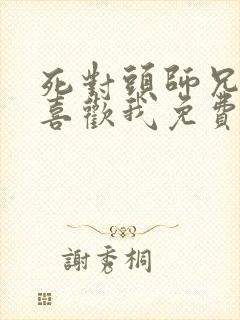 死對頭師兄
喜歡我免費
謝秀桐